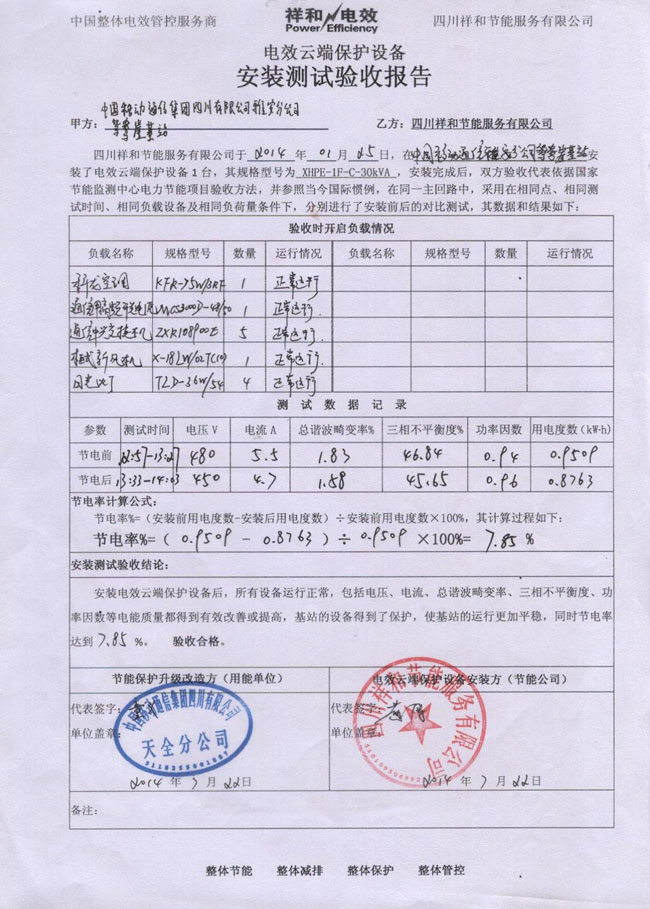 中国整体电效管控服务商
祥和 电效
Power Efficiency
四川祥和节能服务有限公司
电效云端保护设备
安装测试验收报告
中国移动通信集团四川有限公司雅安分公司
甲方：
乙方：四川祥和节能服务有限公司
四川祥和节能服务有限公司于 2014 年 01 月 25 日，在中国移动通信 公司 基站安
装了电效云端保护设备 1 台，其规格型号为 XHPE-1F-C-30kVA ，安装完成后，双方验收代表依据国家
节能监测中心电力节能项目验收方法，并参照当今国际惯例，在同一主回路中，采用在相同点、相同测
试时间、相同负载设备及相同负荷量条件下，分别进行了安装前后的对比测试，其数据和结果如下：
验收时开启负载情况
负载名称 规格型号 数量 运行情况 负载名称 规格型号 数量 运行情况
科龙空调 KFR-75W/BRF 1 正常运行
通信用高频开关电源 1 正常运行
5 正常运行
柜式新风机 X-18LW/02T(10) 1 正常运行
日光灯 TLD-36W/54 4 正常运行
测试数据记录
参数 测试时间 电压 V 电流 A 总谐波畸变率% 三相不平衡度% 功率因数 用电度数(kW·h)
节电前 12:57-13:27 480 5.5 1.83 46.84 0.94 0.9509
节电后 13:33-14:03 450 4.7 1.58 45.65 0.96 0.8763
节电率计算公式：
节电率%=（安装前用电度数-安装后用电度数）÷安装前用电度数×100%，其计算过程如下：
节电率%=（ 0.9509 - 0.8763 ）÷ 0.9509 ×100%= 7.85 %
安装测试验收结论：
安装电效云端保护设备后，所有设备运行正常，包括电压、电流、总谐波畸变率、三相不平衡度、功
率因数等电能质量都得到有效改善或提高，基站的设备得到了保护，使基站的运行更加平稳，同时节电率
达到 7.85 %。 验收合格。
节能保护升级改造方（用能单位）
电效云端保护设备安装方（节能公司）
代表签字：
代表签字：
单位盖章：
单位盖章：
中国移动通信集团四川有限公司
天全分公司
四川祥和节能服务有限公司
2014 年 7 月 22 日
2014 年 7 月 22 日
备注：
整体节能 整体减排 整体保护 整体管控